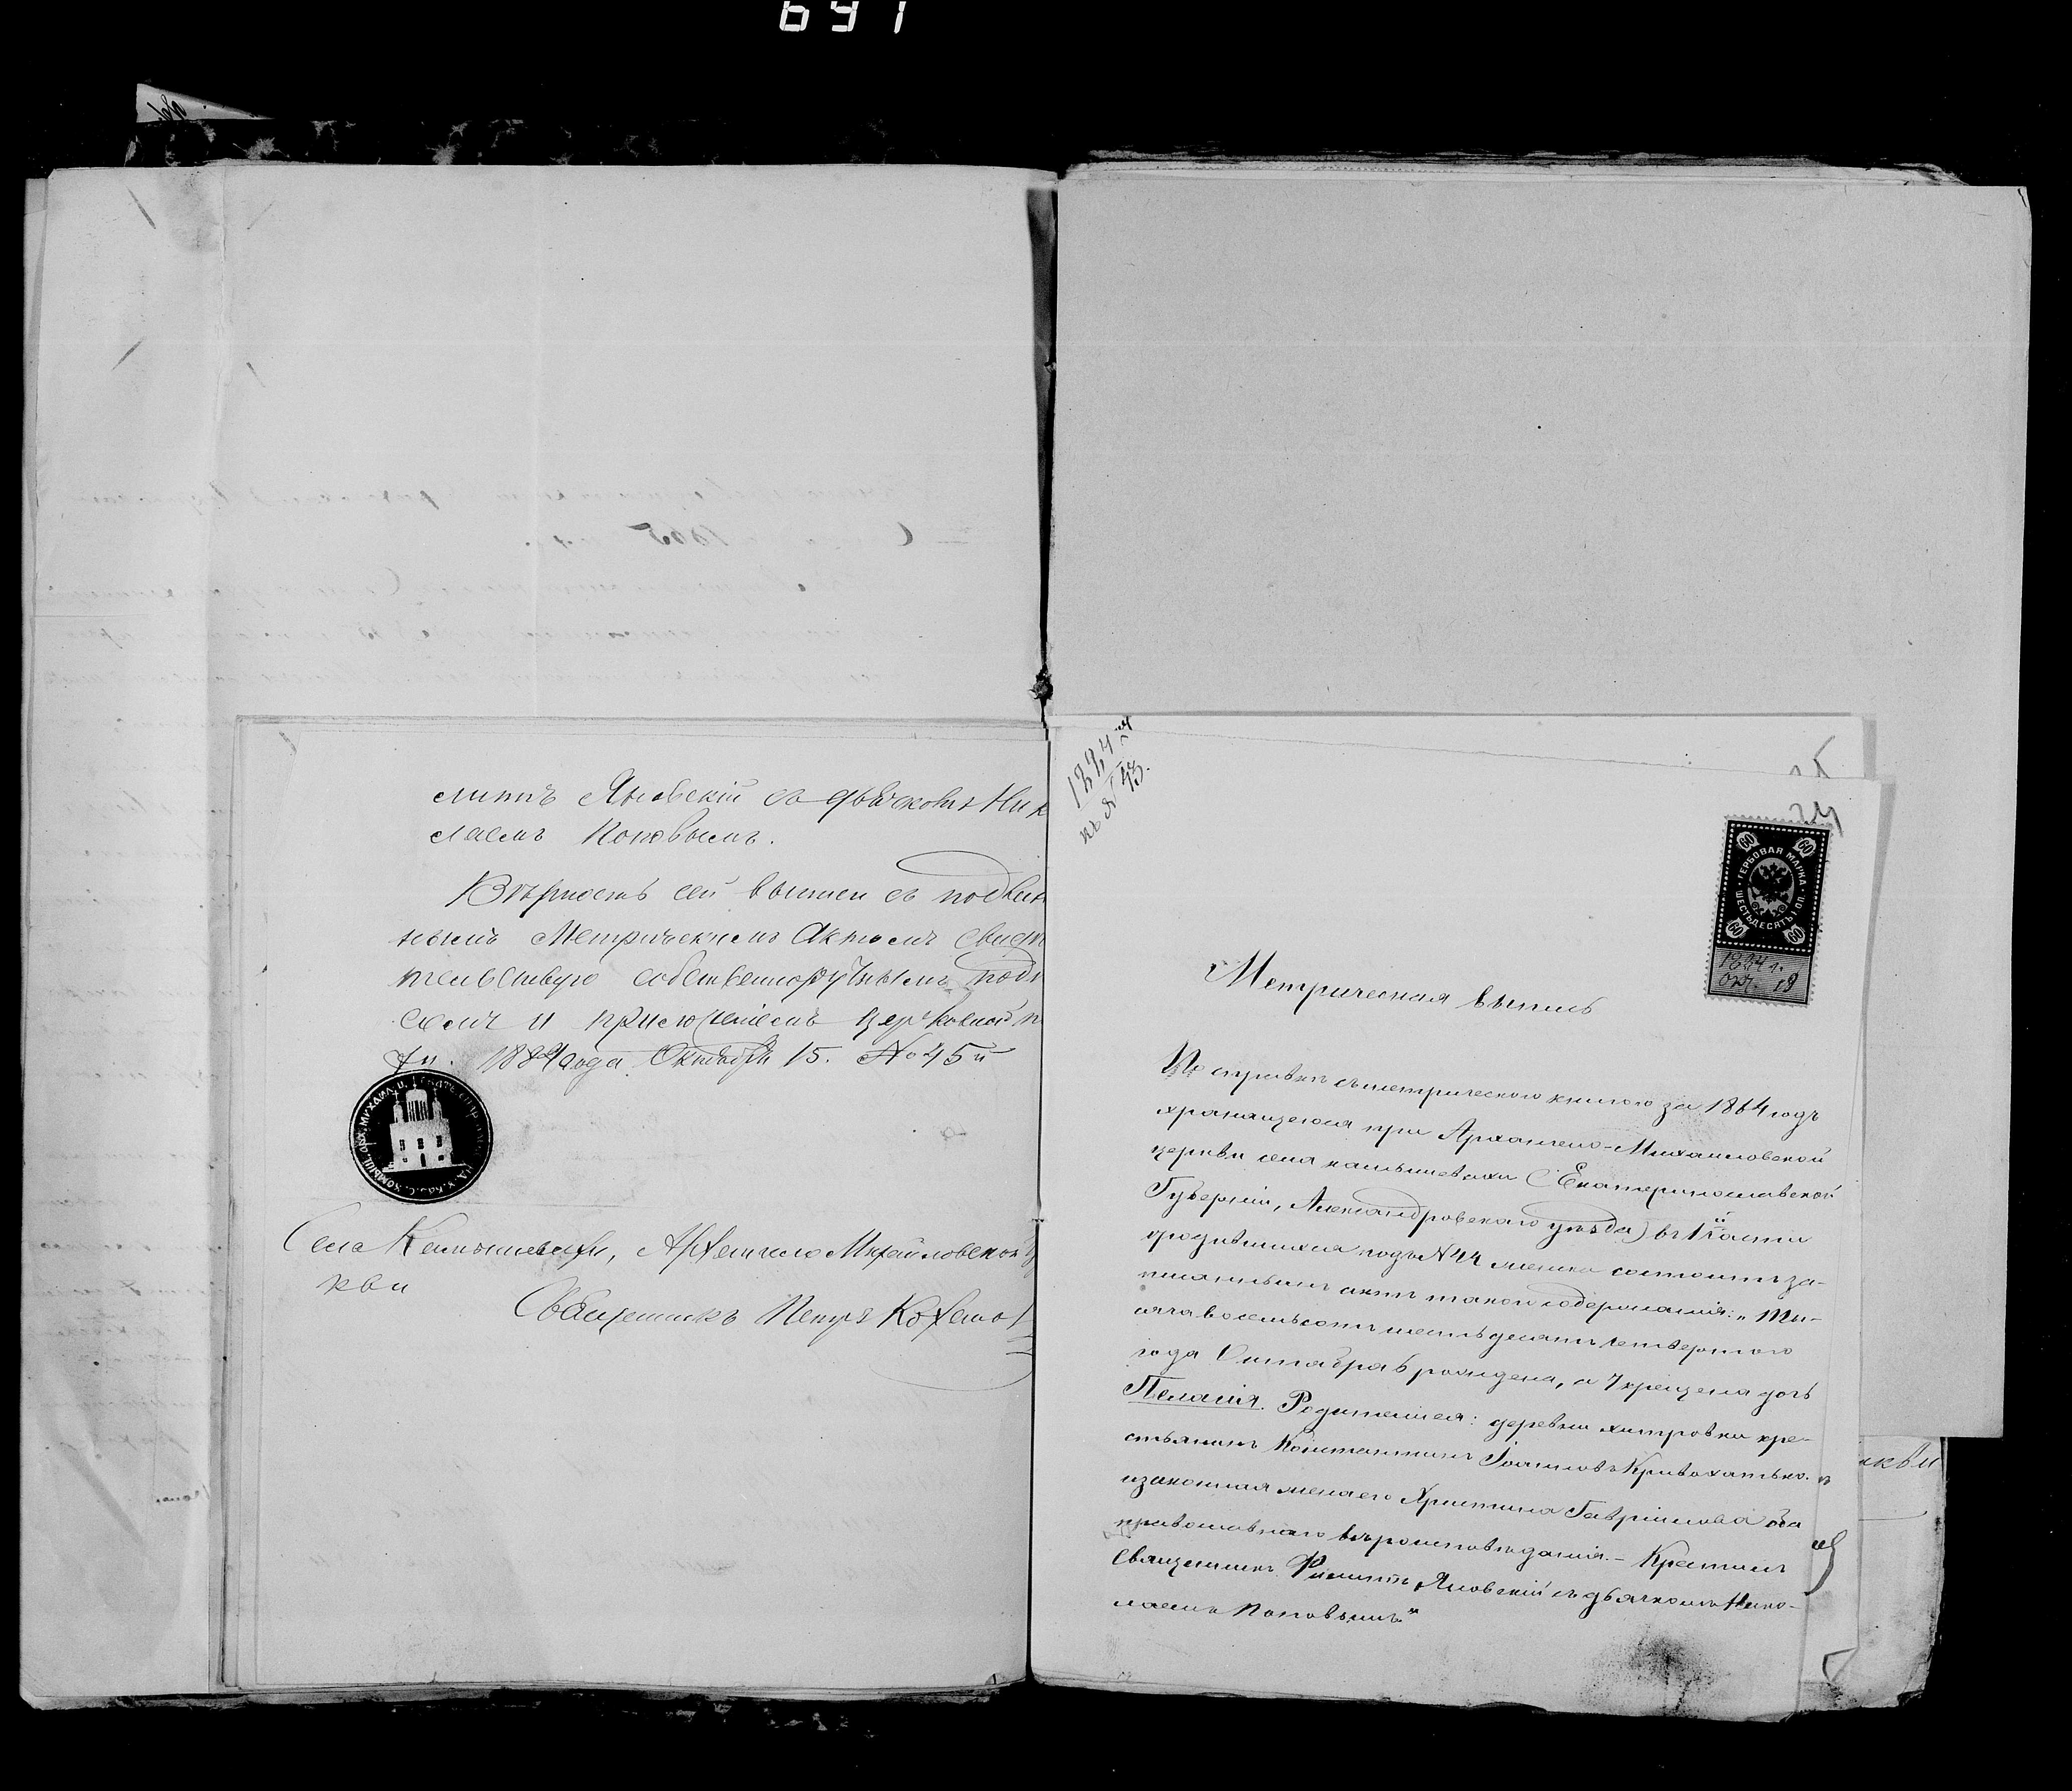 691
слитъ Яновскій съ дьячкомъ Нико
лаемъ Поповымъ.
Вѣрность сей выписи съ подлин
нымъ Метрическимъ Актомъ свидѣ
тельствую собственноручнымъ подп
сомъ и приложеніемъ церковной п
ти. 1884 года Октября 15. № 45й
Села Камышевахи, Архангело Михайловской ц
кви
Священникъ Петръ
1884
къ № 43.
24
ГЕРБОВАЯ МАРКА
ШЕСТЬДЕСЯТЪ КОП.
60 60 60 60
1884 г.
Окт. 19
Метрическая выпись
По справкѣ съ метрическою книгою за 1864 годъ
хранящеюся при Архангело-Михайловской
церкви села Камышевахи (Екатеринославской
Губерніи, Александровскаго уѣзда) въ 1й части
о родившихся подъ № 44 женска состоитъ за-
писаннымъ актъ такого содержанія: „Ты-
сяча восемьсотъ шестьдесятъ четвертого
года Октября 6 рождена, а 7 крещена дочь
Пелагія. Родители ея: деревни Хитровки кре-
стьянинъ Константинъ Іоанновъ Кривохатько.
и законная жена его Христина Гавріилова оба
православнаго вѣроисповѣданія. – Крестилъ
Священникъ Филиппъ Яновскій съ дьячкомъ Нико-
лаемъ Поповымъ"
ркви